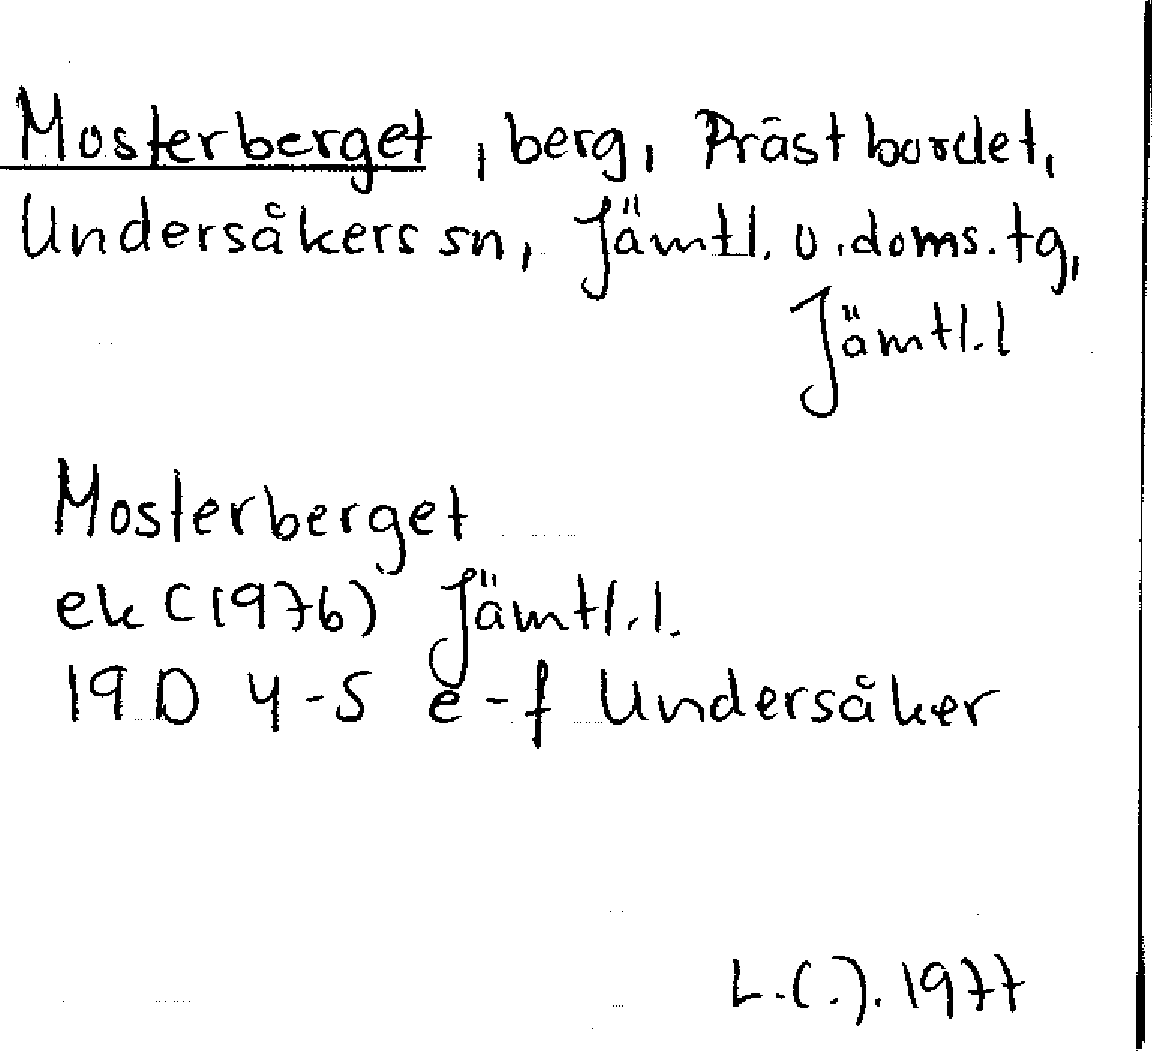 Mosterberget, berg, Prästbordet,
Undersåkers sn, Jämtl. v. doms. tg,
Jämtl. l
Mosterberget
ek (1976) Jämtl. l.
19D 4-5 e-f Undersåker
L.(.). 1977